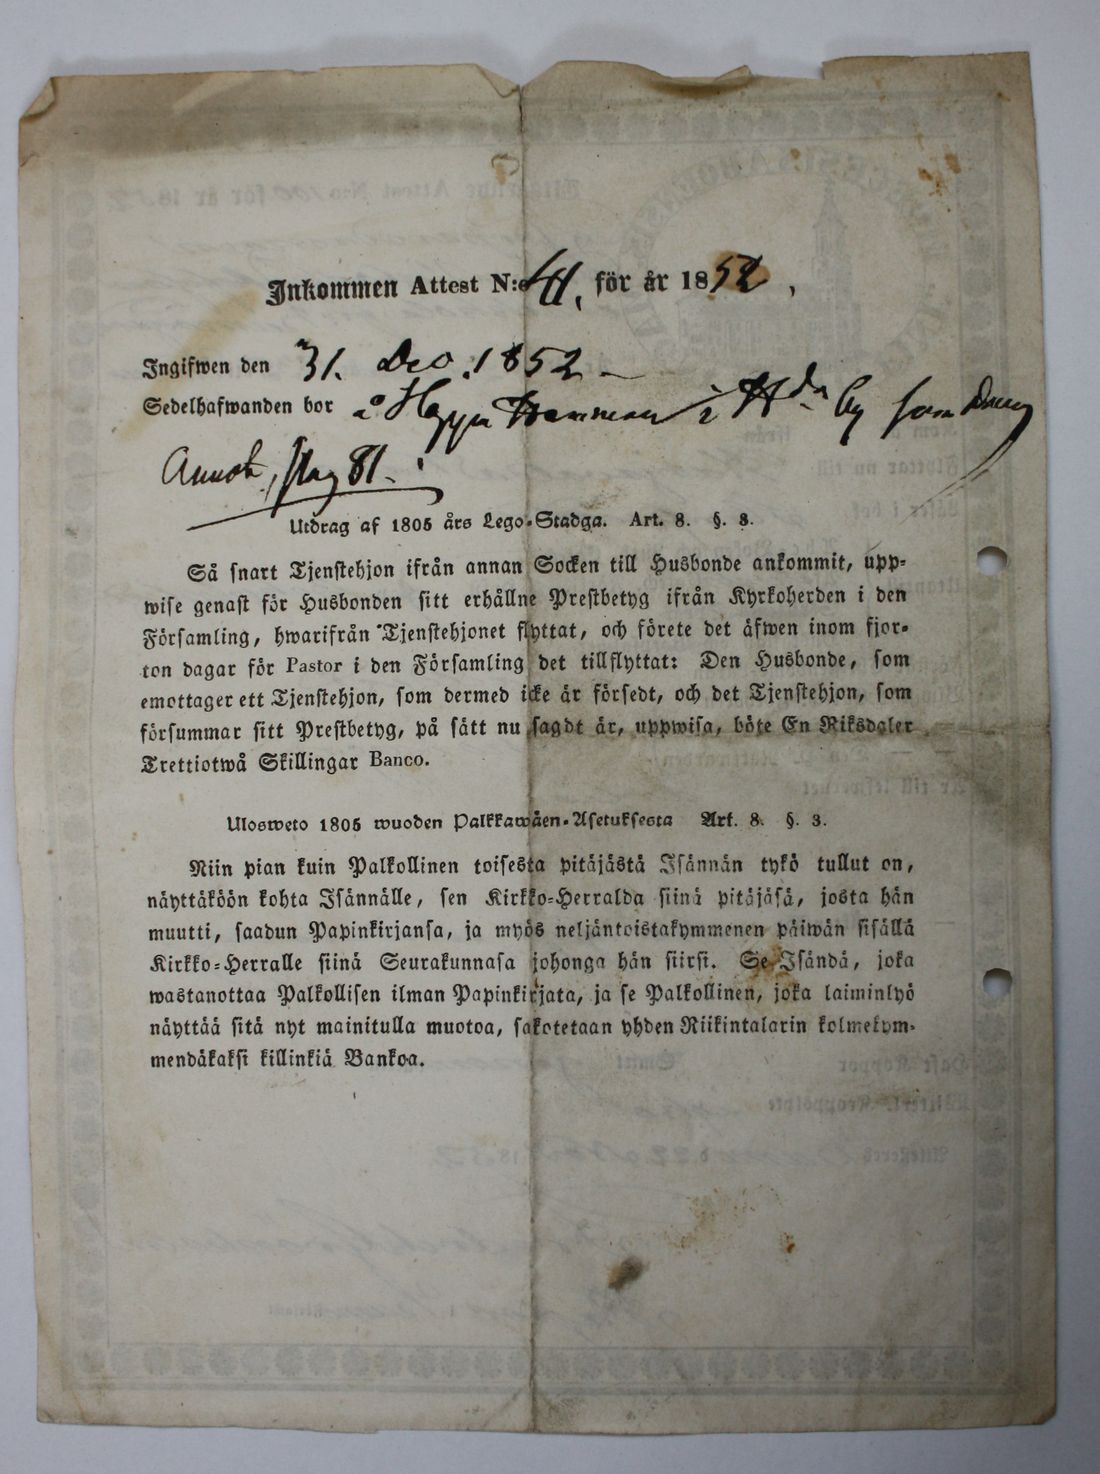 Inkommen Attest N:o 41, för år 1852,
Ingifwen den 31. Dec. 1852 –
Sedelhafwanden bor å i by som
Annot, pag 81.
Utdrag af 1805 års Lego-Stadga. Art. 8. §. 3.
Så snart Tjenstehjon ifrån annan Socken till Husbonde ankommit, upp-
wise genast för Husbonden sitt erhållne Prestbetyg ifrån Kyrkoherden i den
Församling, hwarifrån Tjenstehjonet flyttat, och förete det äfwen inom fjor-
ton dagar för Pastor i den Församling det tillflyttat: Den Husbonde, som
emottager ett Tjenstehjon, som dermed icke är försedt, och det Tjenstehjon, som
försummar sitt Prestbetyg, på sätt nu sagdt är, uppwisa, böte En Riksdaler
Trettiotwå Skillingar Banco.
Ulosweto 1805 wuoden Palkkawäen-Asetuksesta Art. 8. §. 3.
Niin pian kuin Palkollinen toisesta pitäjästä Isännän tykö tullut on,
näyttäköön kohta Isännälle, sen Kirkko-Herralda siinä pitäjäsä, josta hän
muutti, saadun Papinkirjansa, ja myös neljäntoistakymmenen päiwän sisällä
Kirkko-Herralle siinä Seurakunnasa johonga hän siirsi. Se Isändä, joka
wastanottaa Palkollisen ilman Papinkirjata, ja se Palkollinen, joka laiminlyö
näyttää sitä nyt mainitulla muotoa, sakotetaan yhden Riikintalarin kolmekym-
mendäkaksi killinkiä Bankoa.